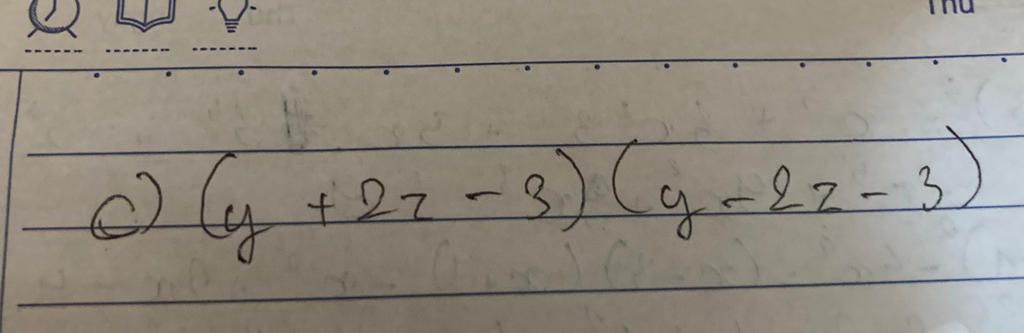 Thu
c) (y + 2z - 3) (y - 2z - 3)